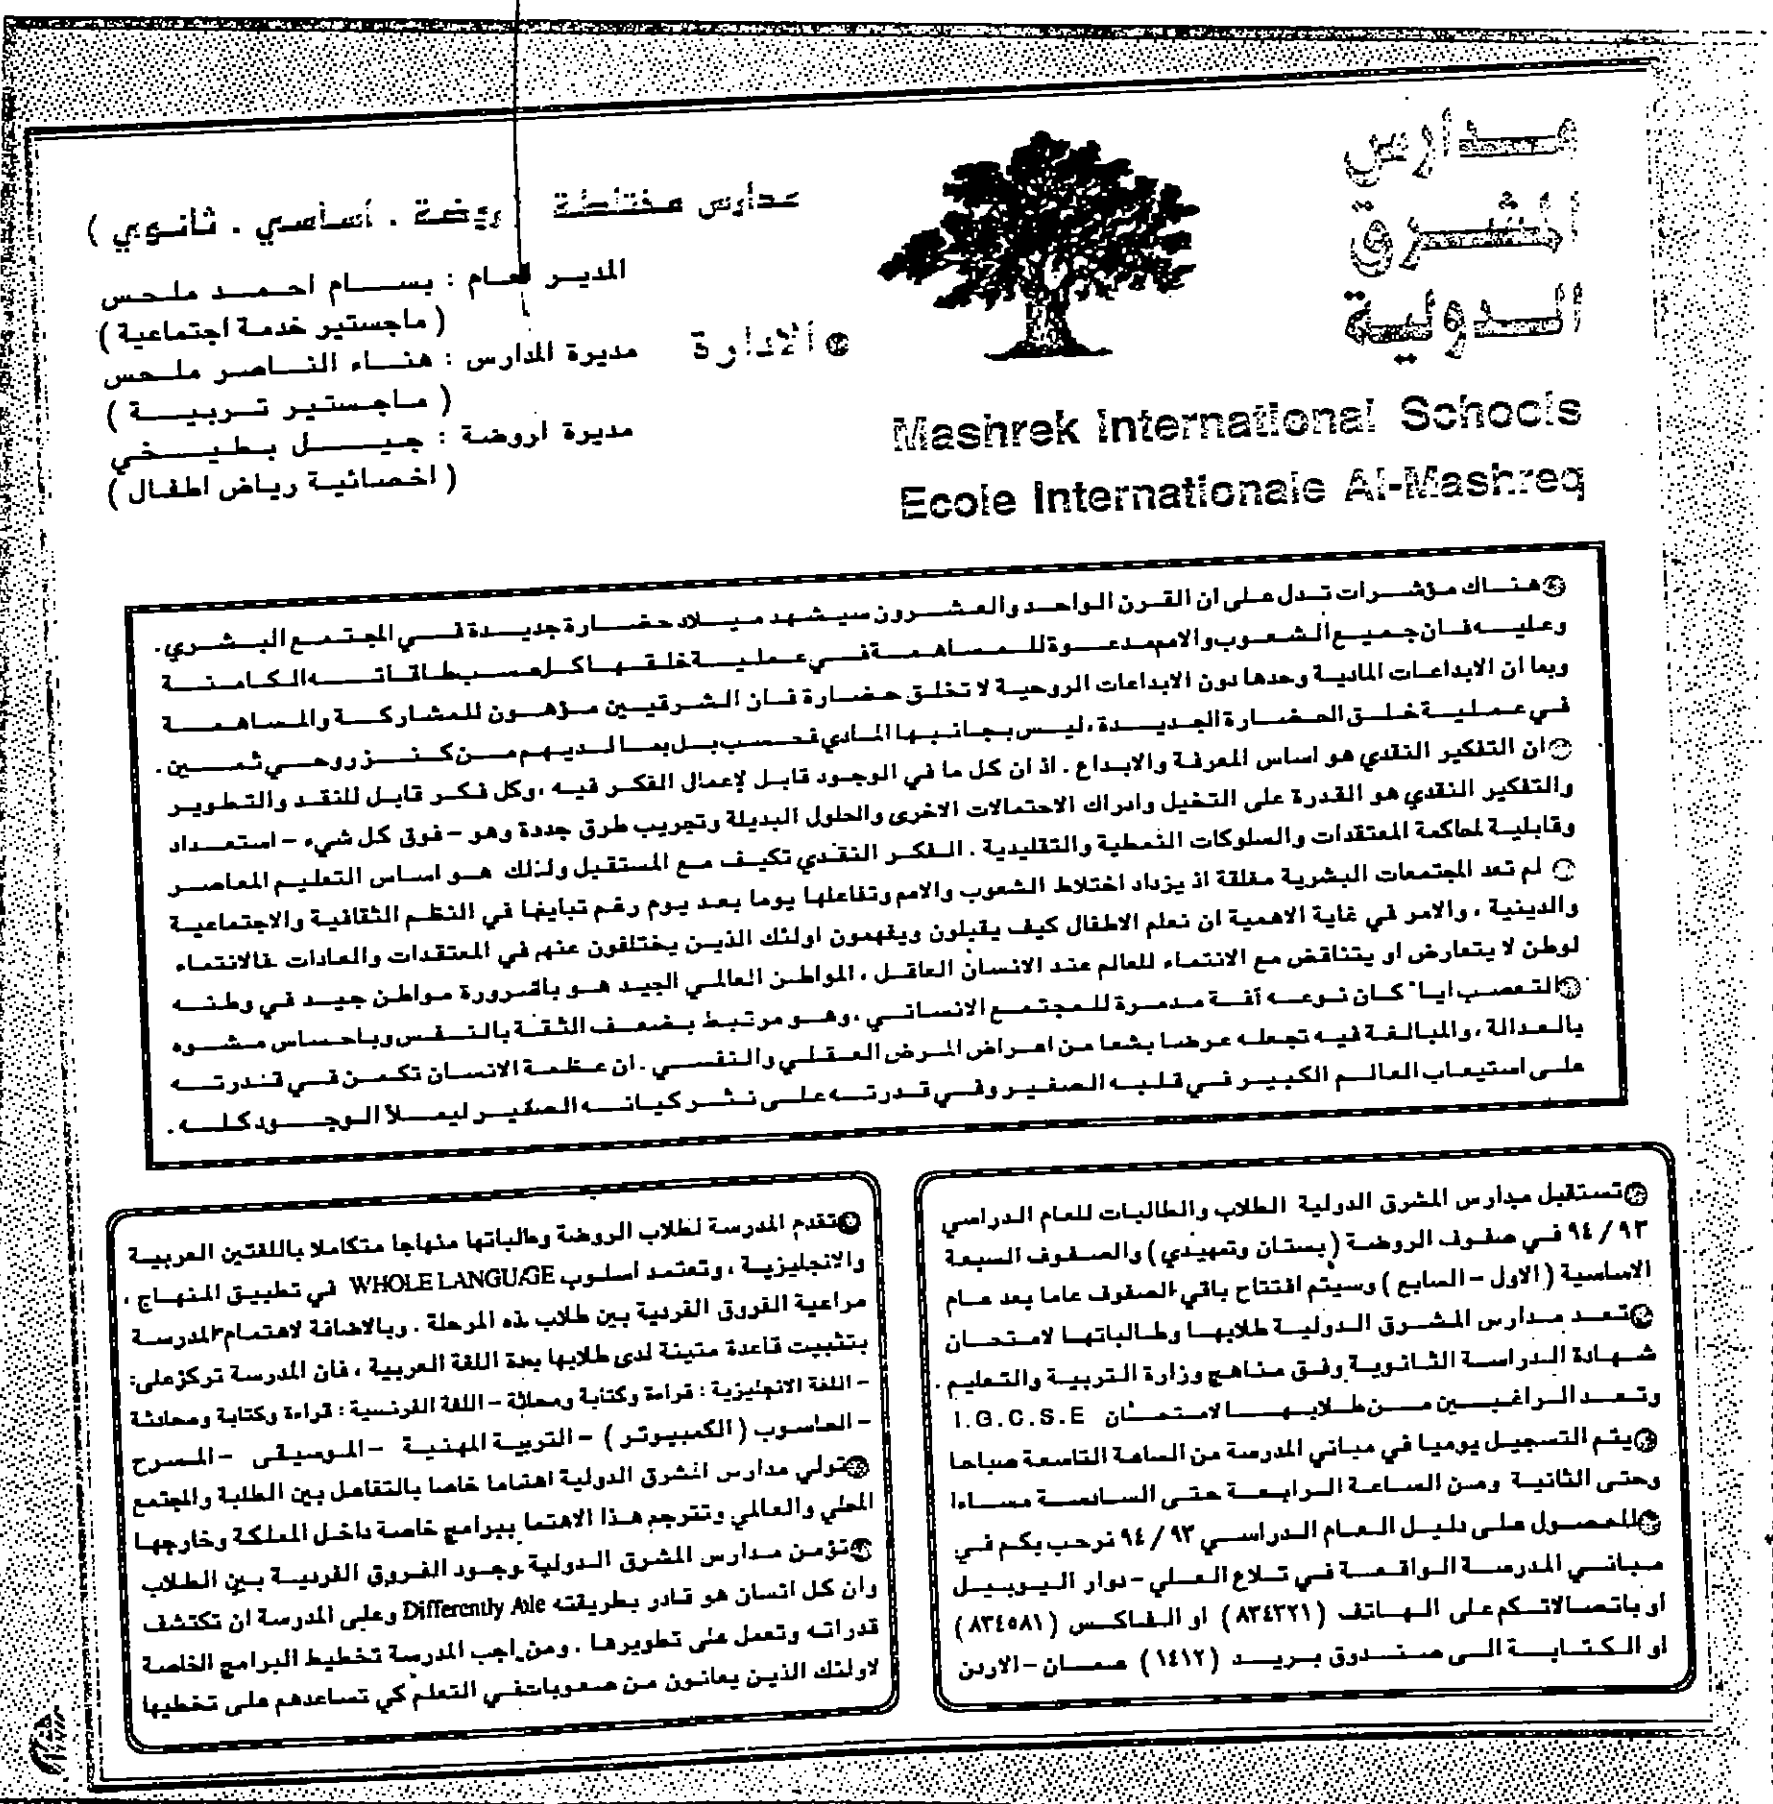 مدارس
المشرق
الدولية
Mashrek International Schools
Ecole Internationale Al-Mashreq
مدارس مختلطة ( روضة . أساسي . ثانوي )
● الادارة
المديـر العـام : بســام احـمـد ملـحـس
( ماجستير خدمة اجتماعية )
مديرة المدارس : هنـاء النـاصـر ملـحـس
( مـاجـستـير تـربـيـة )
مديرة لروضة : جـيـــل بـطـيـخـي
( اخصائية رياض اطفال )
● هنـاك مـؤشـرات تـدل على ان القـرن الـواحـد والعـشـرون سيـشهـد ميـلاد حضـارة جديـدة فـي المجتـمـع البـشـري .
وعليـه فـان جـميـع الشـعـوب والامم مـدعـوة للـمساهـمـة فـي عـملـيـة خلـقـهـا كـل حسـب طـاقـاتـه الـكـامـنـة
وبما ان الابداعـات المادية وحدها دون الابداعات الروحيـة لا تـخلـق حـضـارة فـان الـشرقيـين مـؤهـون للـمشاركـة والمـساهـمـة
فـي عـمـليـة خـلـق الحـضـارة الجـديـدة ، ليـس بـجـانـبـها المـادي فـحـسـب بـل بمـا لـديـهـم مـن كـنـز روحـي ثـمـين .
● ان التفكير النقدي هو اساس المعرفة والابداع . اذ ان كل ما في الوجود قابل لإعمال الفكر فيه ، وكل فكر قابل للنقد والتطوير
والتفكير النقدي هو القدرة على التخيل وادراك الاحتمالات الاخرى والحلول البديلة وتجريب طرق جددة وهو - فوق كل شيء - استعـداد
وقابلية لمحاكمة المعتقدات والسلوكات النمطية والتقليدية . الفكر النقدي تكيف مع المستقبل ولذلك هو اساس التعليم المعاصر
● لم تعد المجتمعات البشرية مغلقة اذ يزداد اختلاط الشعوب والامم وتفاعلها يوما بعد يوم رغم تباينها في النظم الثقافية والاجتماعية
والدينية ، والامر في غاية الاهمية ان نعلم الاطفال كيف يقبلون ويفهمون اولئك الذين يختلفون عنهم في المعتقدات والعادات فالانتماء
لوطن لا يتعارض او يتناقض مع الانتماء للعالم عند الانسان العاقل ، المواطن العالمي الجيد هو بالضرورة مواطن جيد في وطنه
● التعصب ايا كان نوعه آفة مدمرة للمجتمع الانساني ، وهو مرتبط بضعف الثقة بالنفس وباحساس مشوه
بالعدالة ، والمبالغة فيه تجعله عرضا بشعا من اعراض المرض العقلي والنفسي . ان عظمة الانسان تكمن في قدرته
على استيعاب العالم الكبير في قلبه الصغير وفي قدرته على نشر كيانه الصغير ليملأ الوجود كله .
● تستقبل مدارس المشرق الدولية الطلاب والطالبات للعام الدراسي
٩٣ / ٩٤ في صفوف الروضة ( بستان وتمهيدي ) والصفوف السبعة
الاساسية ( الاول - السابع ) وسيتم افتتاح باقي الصفوف عاما بعد عام
● تعد مدارس المشرق الدولية طلابها وطالباتها لامتحان
شهادة الدراسة الثانوية وفق مناهج وزارة التربية والتعليم .
وتعد الراغبين من طلابها لامتحان I.G.C.S.E
● يتم التسجيل يوميا في مباني المدرسة من الساعة التاسعة صباحا
وحتى الثانية ومن الساعة الرابعة حتى السادسة مساءا
● للحصول على دليل العام الدراسي ٩٣ / ٩٤ نرحب بكم في
مباني المدرسة الواقعة في تلاع العلي - دوار اليوبيل
أو باتصالاتكم على الهاتف ( ٨٣٤٣٢١ ) او الفاكس ( ٨٣٤٥٨١ )
او الكتابة الى صندوق بريد ( ١٤١٢ ) عمان - الاردن
● تقدم المدرسة لطلاب الروضة وطالباتها منهاجا متكاملا باللغتين العربية
والانجليزية ، وتعتمد اسلوب WHOLE LANGUAGE في تطبيق المنهاج ،
مراعية الفروق الفردية بين طلاب هذه المرحلة . وبالاضافة لاهتمام المدرسة
بتثبيت قاعدة متينة لدى طلابها بمدة اللغة العربية ، فان المدرسة تركز على :
- اللغة الانجليزية : قراءة وكتابة ومحادثة - اللغة الفرنسية : قراءة وكتابة ومحادثة
- الحاسوب ( الكمبيوتر ) - التربية المهنية - الموسيقى - المسرح
● تولي مدارس المشرق الدولية اهتماما خاصا بالتفاعل بين الطلبة والمجتمع
المحلي والعالمي وتترجم هذا الاهتما ببرامج خاصة داخل المملكة وخارجها
● تؤمن مدارس المشرق الدولية بوجود الفروق الفردية بين الطلاب
وان كل انسان هو قادر بطريقته Differently Able وعلى المدرسة ان تكتشف
قدراته وتعمل على تطويرها . ومن اجب المدرسة تخطيط البرامج الخاصة
لاولئك الذين يعانون من صعوبات في التعلم كي تساعدهم على تخطيها